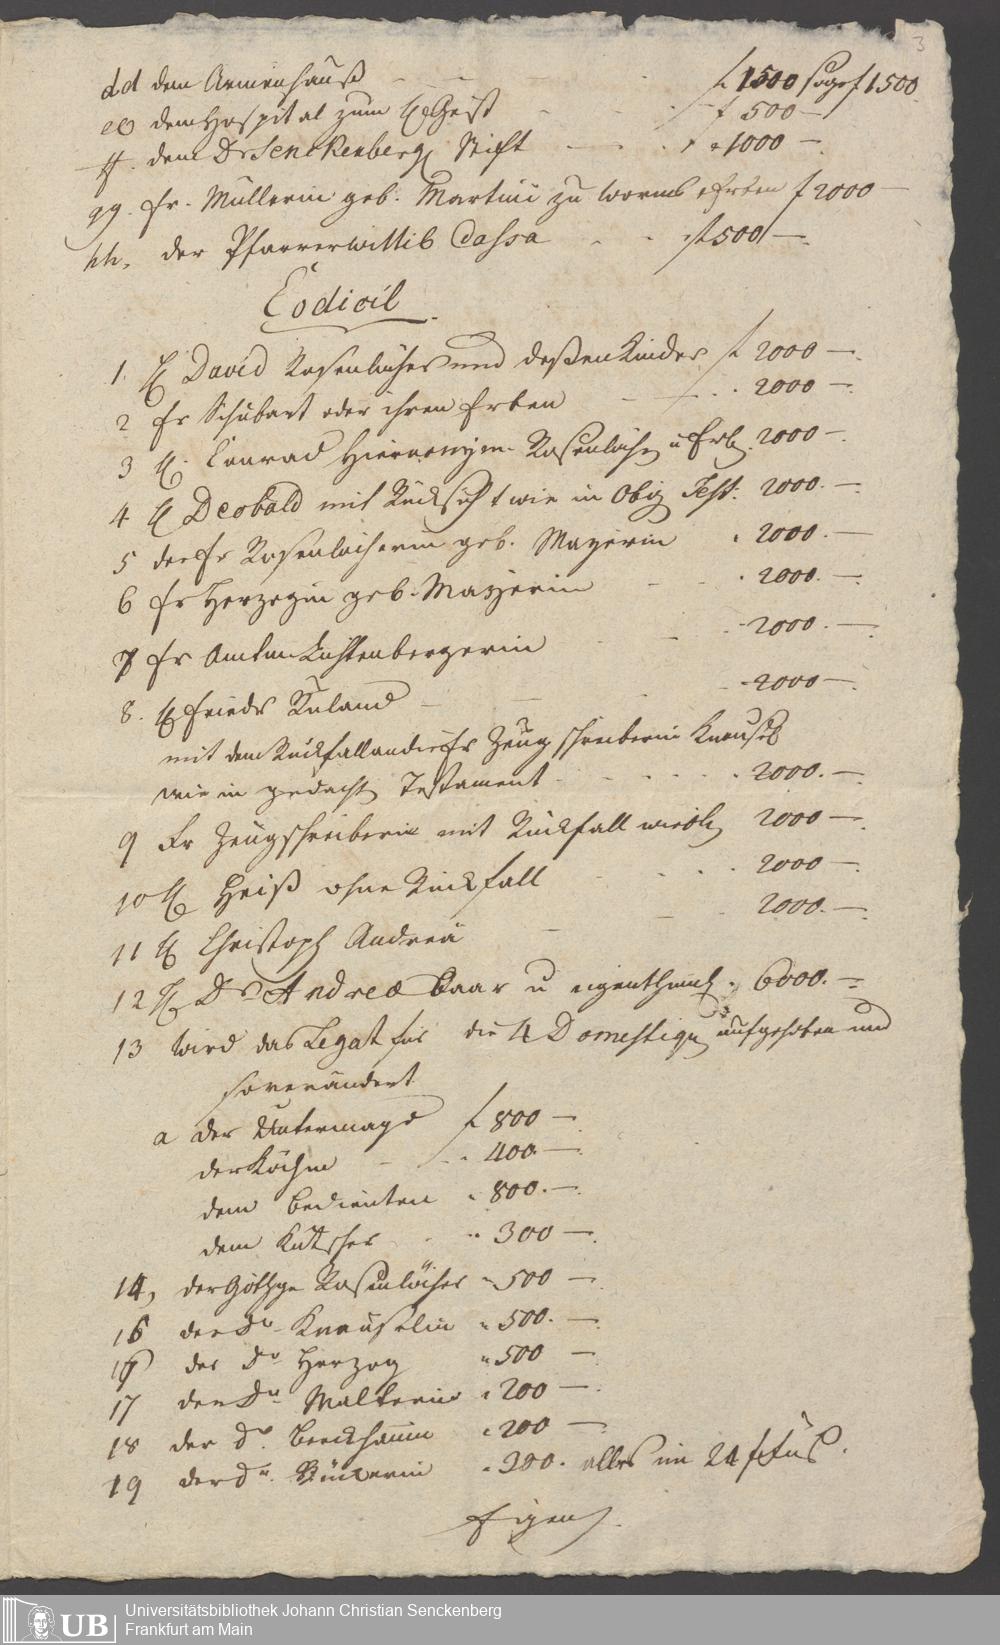 3
dd dem Armenhauß f 1500 f 1500
ee dem Hospital zum H Geist f 500 –
ff. dem Dr Senckenberg Stift 1000 –
gg. Fr. Müllerin geb. Martini zu Worms Erben f 2000 –
hh. der Pfarrerwittib Cassa f 500 –
Codicil
1. H David Rosenlächer und deßen Kinder f 2000 –
2 Fr Schubart oder ihren Erben 2000 –
3 H. Conrad Hieronym. Rosenläch u Erb. 2000 –
4 H Deobald mit Rücksicht wie in Obig Test. 2000. –
5 der Fr Rosenlächerin geb. Mayerin 2000. –
6 Fr Herzogin geb. Mayerin 2000. –
7 Fr Amtm Lichtenbergerin 2000. –
8. H Friedr Ruland 2000 –
mit dem Rückfall an die Fr Zeugschreiberin Knauß
wie in gedacht Testament 2000. –
9 Fr Zeugschreiberin mit Rückfall 2000 –
10 H Heiß ohne Rückfall 2000 –
11 H Christoph Andreä 2000. –
12 H Dr Andreæ Baar u eigenthüml 6000. –
13 Wird das Legat für die 4 Domestiqu aufgehoben und
so verändert
a der Untermagd f 800 –
der Köchin 400 –
dem Bedienten 800. –
dem Kutscher 300 –
14, der Göthge Rosenlächer 500 –
15 der do Knauselin 500. –
16 der do Herzog 500 –
17 der do Walterin 200 –
18 der do. 200 –
19 der do. 200. alles im 24 f Fuß.
Eigen
UB
Universitätsbibliothek Johann Christian Senckenberg
Frankfurt am Main